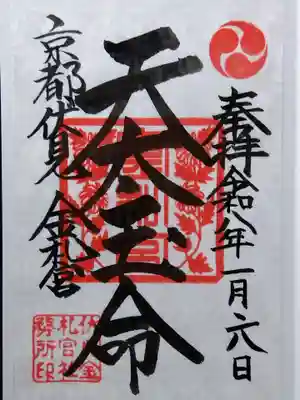 奉拝 令和八年一月六日
天太玉命
京都伏見 金札宮
金札宮
札宮社
務所印